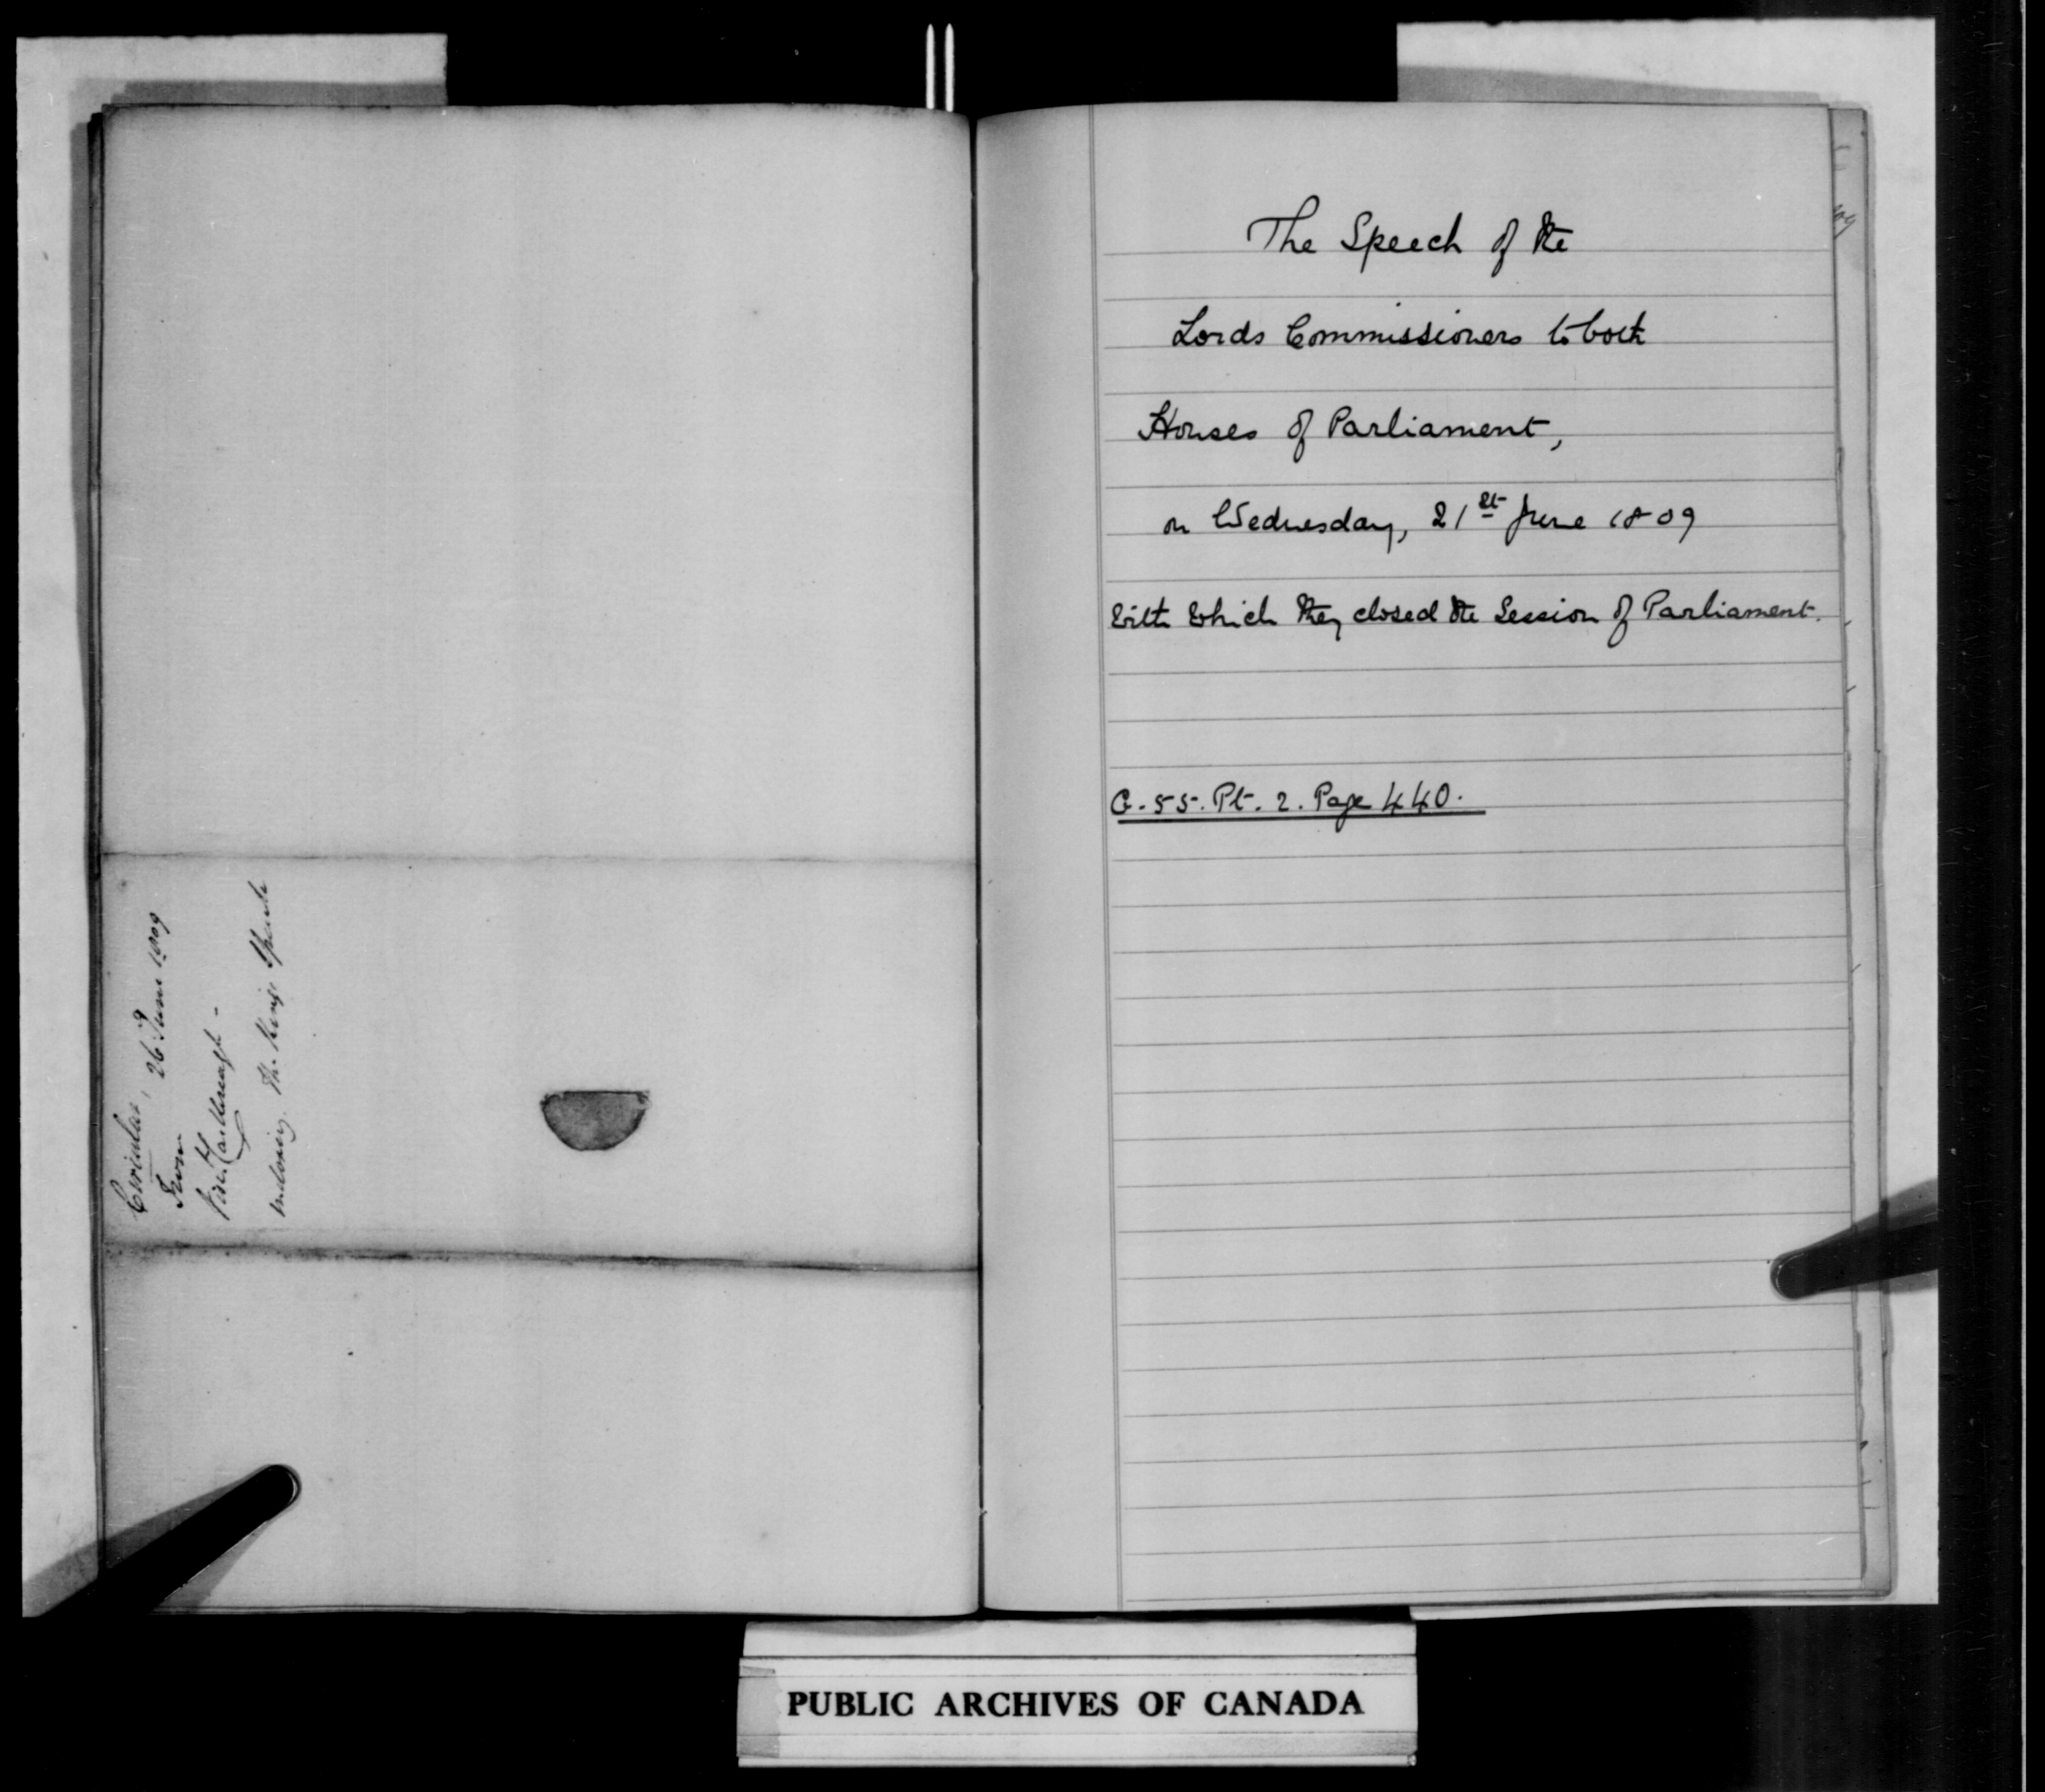 Circular, 26th June 1809
From
Visct. Castlereagh -
inclosing The King's Speech
The Speech of the
Lords Commissioners to both
Houses of Parliament,
on Wednesday, 21st June 1809
with which they closed the Session of Parliament.
C. 55. Pt. 2. Page 440.
PUBLIC ARCHIVES OF CANADA